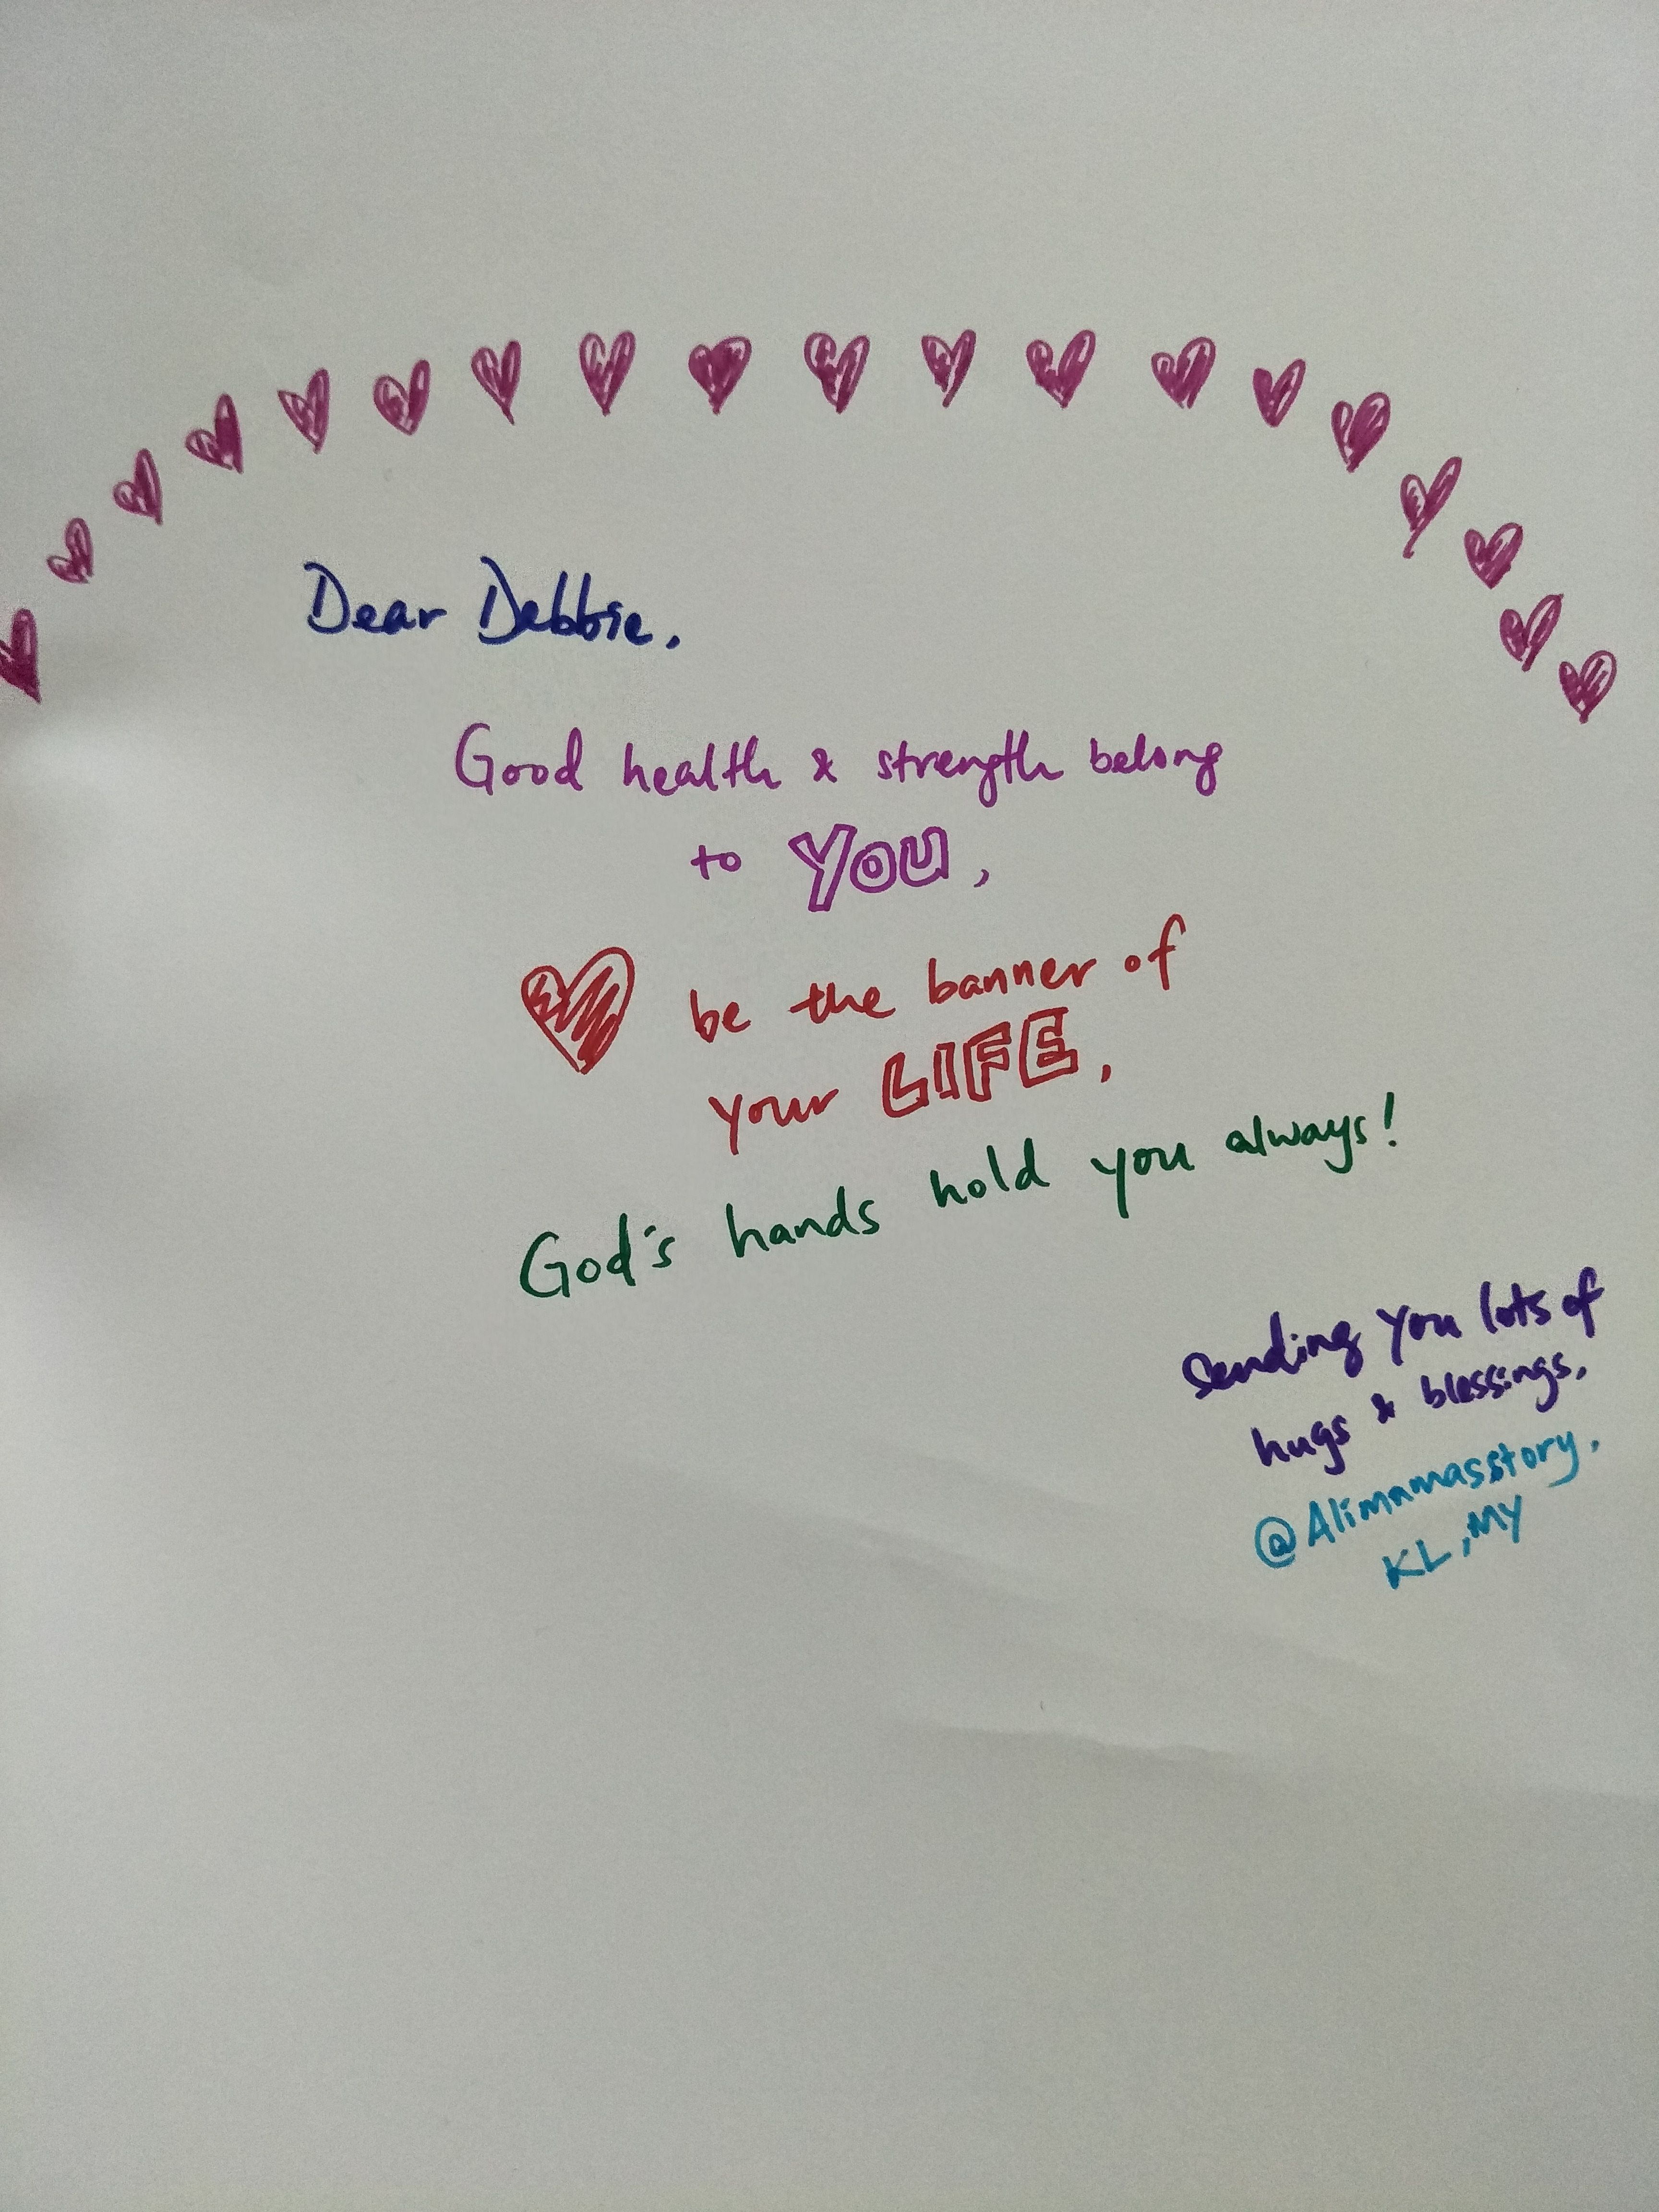 Dear Debbie,
Good health & strength belong
to YOU,
be the banner of
your LIFE,
God's hands hold you always!
Sending you lots of
hugs & blessings,
@Alimamasstory,
KL, MY